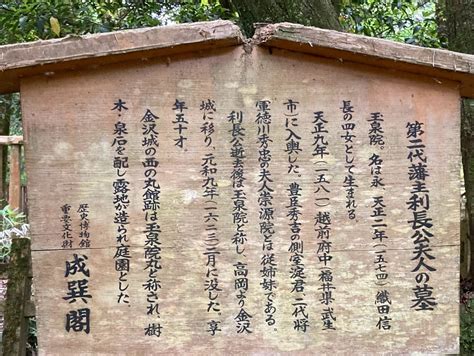 第二代藩主利長公夫人の墓
玉泉院。名は永 天正二年（一五七四）織田信
長の四女として生まれる。
天正九年（一五八一）越前府中（福井県武生
市）に入輿した。豊臣秀吉の側室淀君、二代将
軍徳川秀忠の夫人崇源院とは従姉妹である。
利長公逝去後は玉泉院と称し、高岡より金沢
城に移り、元和九年（一六二三）二月に没した。享
年五十才。
金沢城の西の丸跡は玉泉院丸と称され、樹
木・泉石を配し露地が造られ庭園とした。
歴史博物館
重要文化財
成巽閣